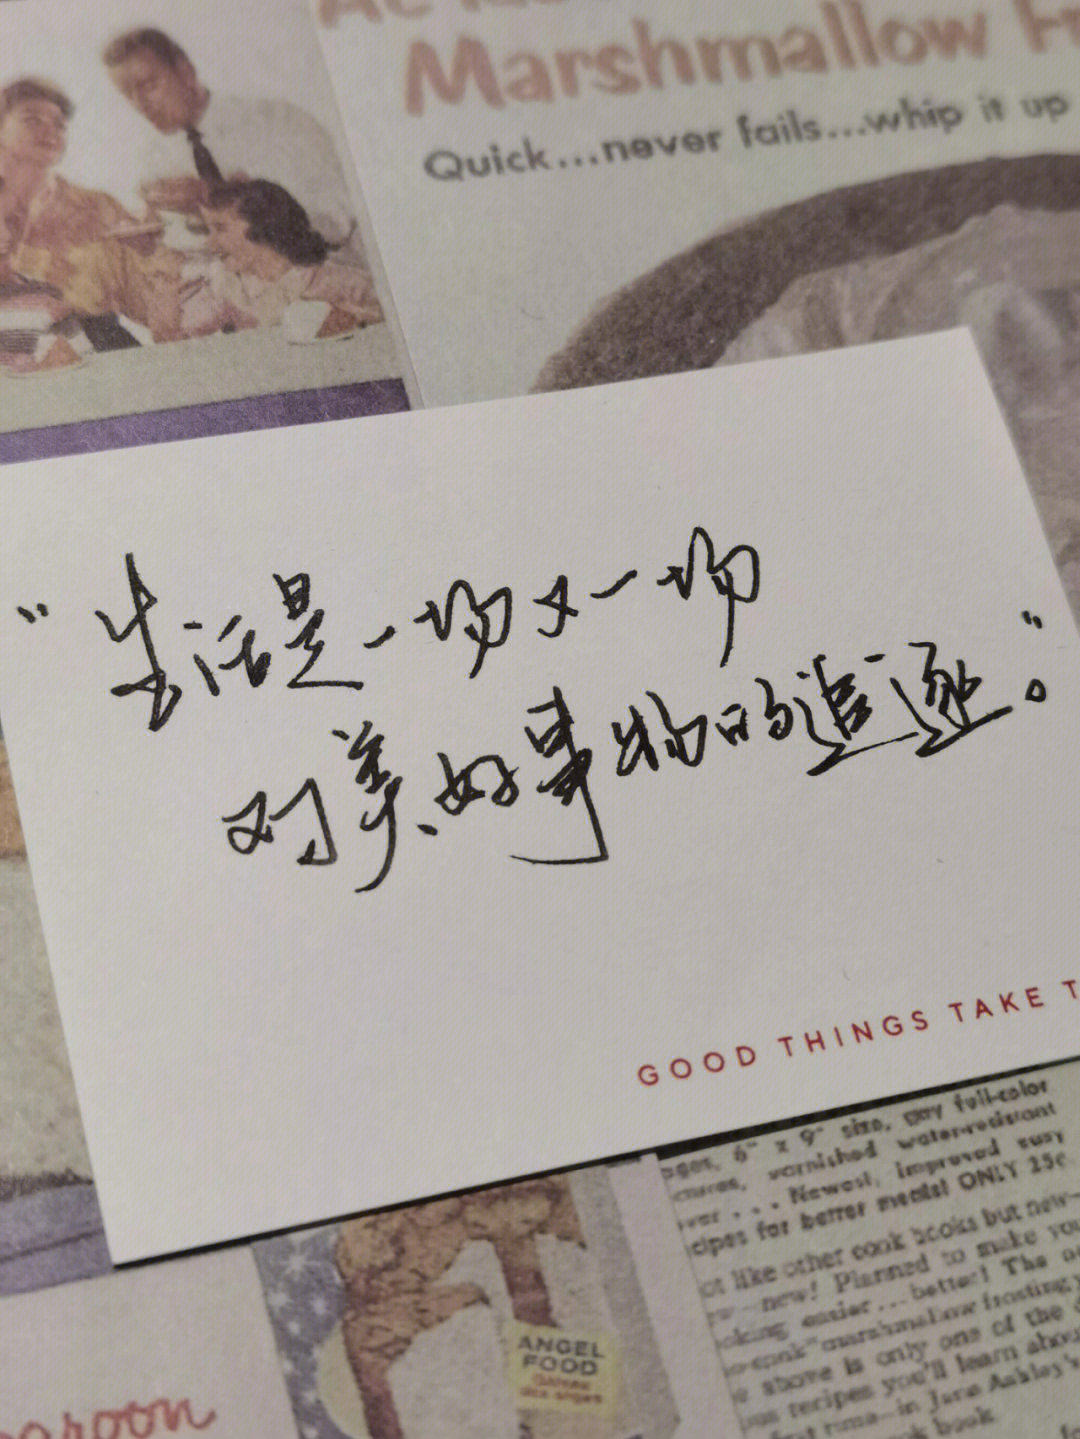 Marshmallow
Quick...never fails...whip it up
“生活是一场又一场
对美好事物的追逐。”
GOOD THINGS TAKE T
6" x 9" size, gay full-color
varnished water-resistant
... Newest, improved easy
recipes for better meals! ONLY 25¢
ot like other cook books but new—
new! Planned to make you
oking easier...better! The
cook" marshmallow frosting
above is only one of the
recipes you'll learn abou
first time—in Jane Ashley's
book
ANGEL
FOOD
aroon